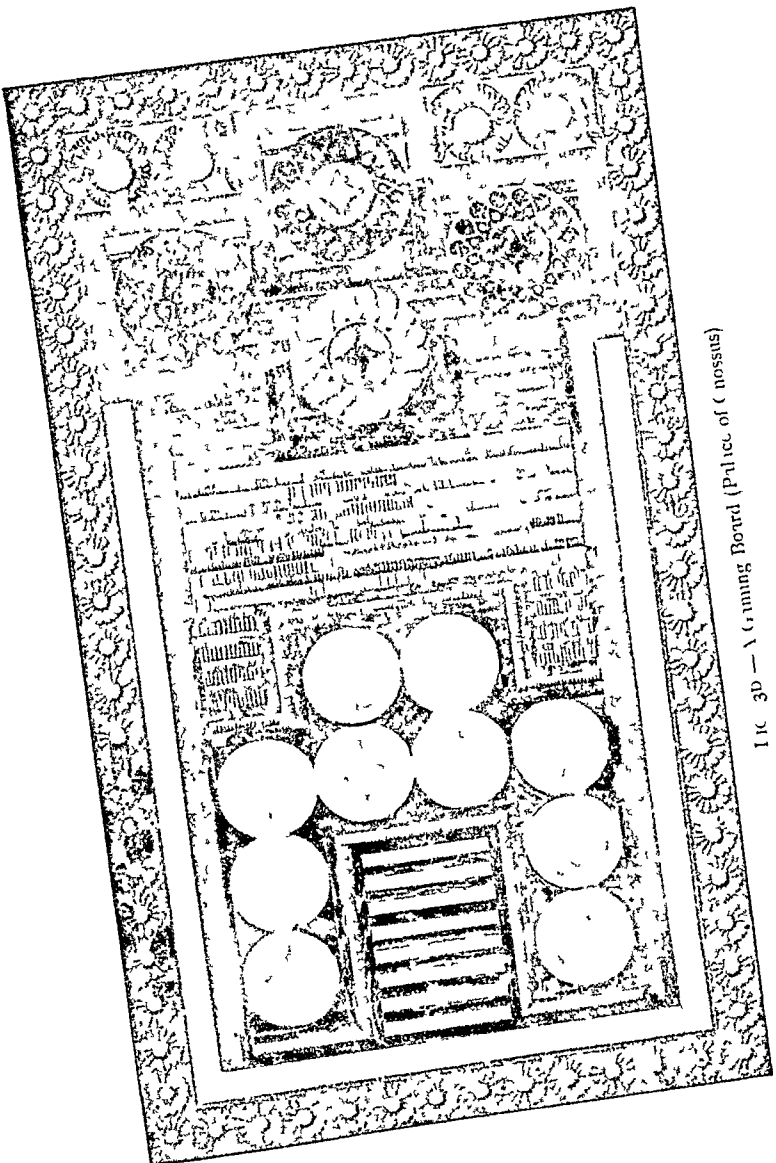 3D — A Gaming Board (Palace of Cnossus)